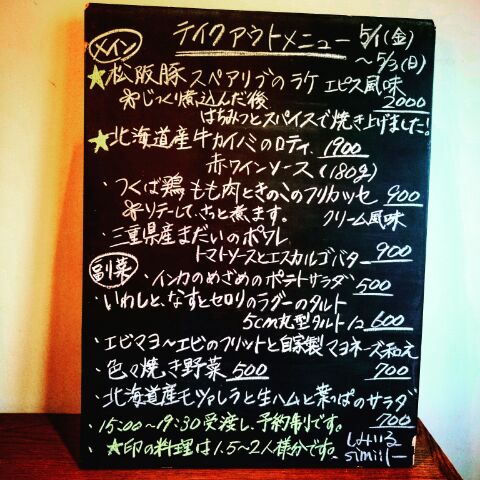 テイクアウトメニュー 5/1(金)
～5/3(日)
メイン
★松阪豚スペアリブのラケ エピス風味
じっくり煮込んだ後 2000
はちみつとスパイスで焼き上げました!
★北海道産牛カイノミのロティ 1900
赤ワインソース(180g)
・つくば鶏もも肉ときのこのフリカッセ 900
ソテーして、さっと煮ます。 クリーム風味
・三重県産まだいのポワレ
トマトソースとエスカルゴバター 900
副菜
・インカのめざめのポテトサラダ 500
・いわしと、なすとセロリのラグーのタルト
5cm丸型タルト1コ 600
・エビマヨ～エビのフリットと自家製マヨネーズ和え
・色々焼き野菜 500 700
・北海道産モツァレラと生ハムと葉っぱのサラダ
700
・15:00～19:30受渡し、予約制です。
・★印の料理は1.5～2人様分です。
simili